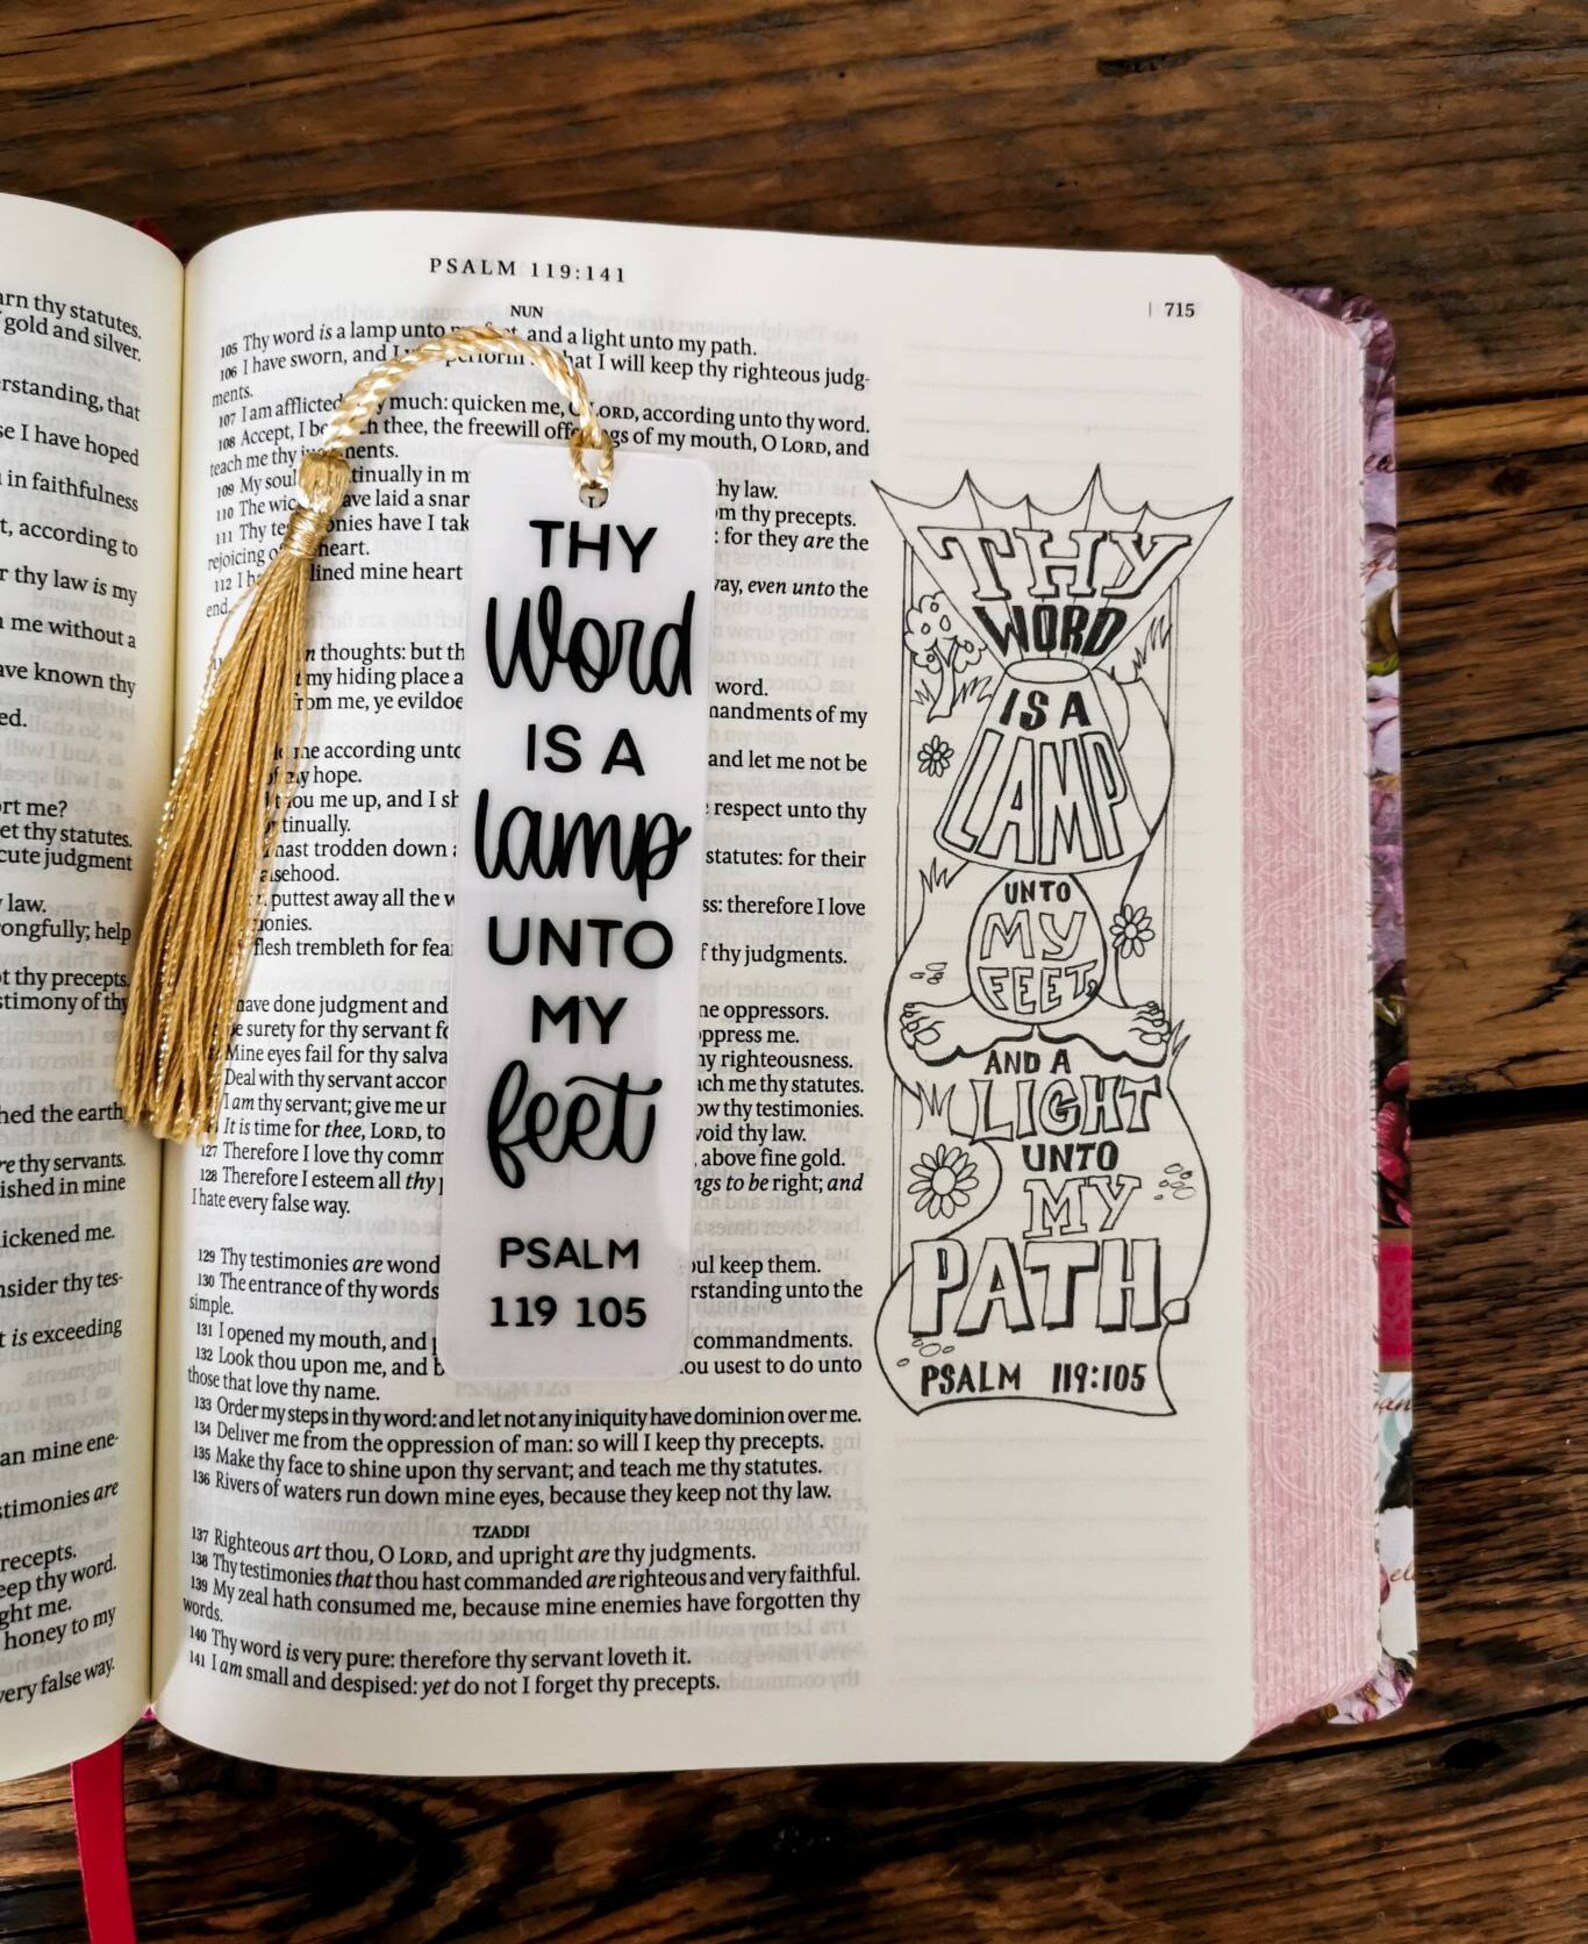 arn thy statutes.
gold and silver.
rstanding, that
se I have hoped
in faithfulness
t, according to
r thy law is my
me without a
ave known thy
ed.
ort me?
et thy statutes.
cute judgment
law.
ongfully; help
t thy precepts.
stimony of thy
hed the earth
re thy servants.
ished in mine
ickened me.
nsider thy tes-
t is exceeding
an mine ene-
stimonies are
recepts.
eep thy word.
ght me.
honey to my
very false way.
PSALM 119:141
715
NUN
105 Thy word is a lamp unto and a light unto my path.
106 I have sworn, and I perform that I will keep thy righteous judg-
ments.
107 I am afflicted much: quicken me, O LORD, according unto thy word.
108 Accept, I thee, the freewill offerings of my mouth, O LORD, and
teach me thy
109 My soul tinually in m hy law.
110 The wic ave laid a snar m thy precepts.
111 Thy te onies have I tak : for they are the
rejoicing o heart.
112 I lined mine heart ay, even unto the
end.
thoughts: but th
my hiding place a word.
rom me, ye evildoe mandments of my
me according unto and let me not be
my hope.
thou me up, and I sh respect unto thy
tinually.
hast trodden down statutes: for their
sehood.
puttest away all the w ss: therefore I love
onies.
flesh trembleth for fea f thy judgments.
have done judgment and ne oppressors.
e surety for thy servant fo ppress me.
Mine eyes fail for thy salva hy righteousness.
Deal with thy servant accor ach me thy statutes.
I am thy servant; give me un ow thy testimonies.
It is time for thee, LORD, to void thy law.
127 Therefore I love thy comm above fine gold.
128 Therefore I esteem all thy ngs to be right; and
I hate every false way.
129 Thy testimonies are wond oul keep them.
130 The entrance of thy words rstanding unto the
simple.
131 I opened my mouth, and commandments.
132 Look thou upon me, and b ou usest to do unto
those that love thy name.
133 Order my steps in thy word: and let not any iniquity have dominion over me.
134 Deliver me from the oppression of man: so will I keep thy precepts.
135 Make thy face to shine upon thy servant; and teach me thy statutes.
136 Rivers of waters run down mine eyes, because they keep not thy law.
TZADDI
137 Righteous art thou, O LORD, and upright are thy judgments.
138 Thy testimonies that thou hast commanded are righteous and very faithful.
139 My zeal hath consumed me, because mine enemies have forgotten thy
words.
140 Thy word is very pure: therefore thy servant loveth it.
141 I am small and despised: yet do not I forget thy precepts.
THY
Word
IS A
lamp
UNTO
MY
feet
PSALM
119 105
THY
WORD
IS A
LAMP
UNTO
MY
FEET,
AND A
LIGHT
UNTO
MY
PATH.
PSALM 119:105